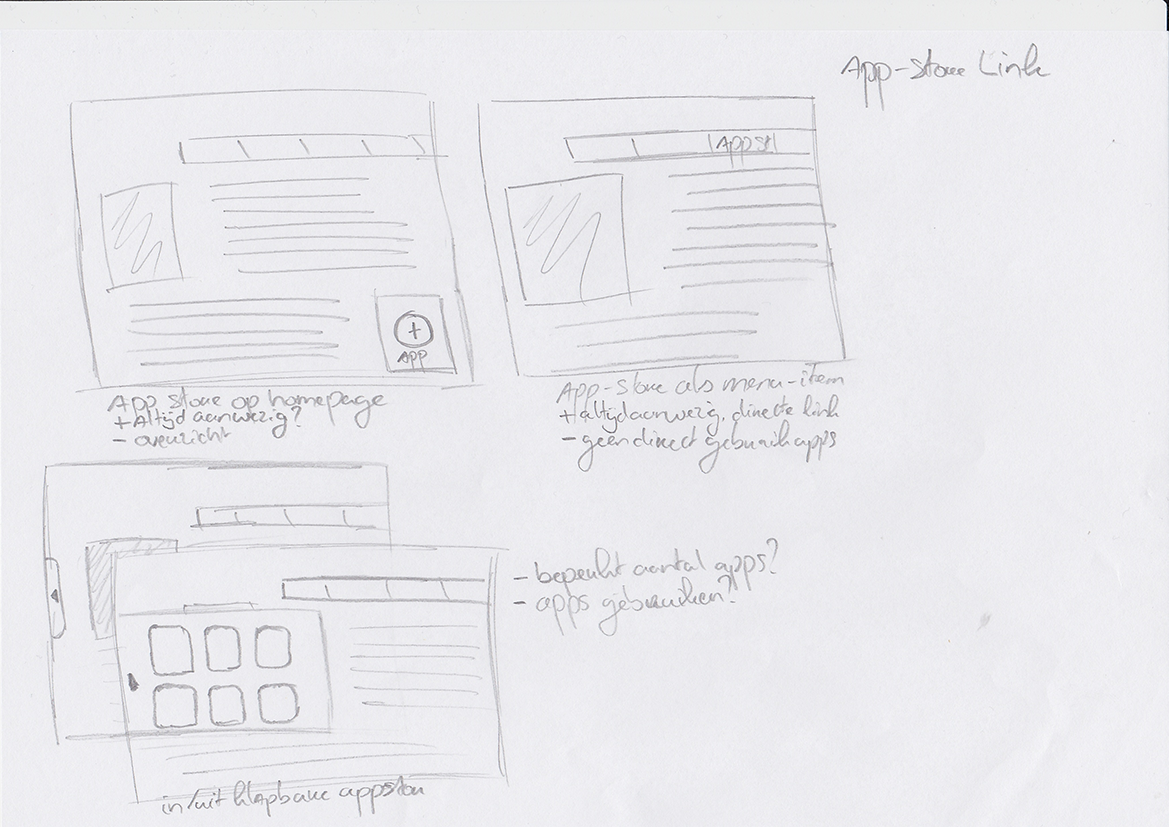 App-store Link
|Appst|
+
APP
App store op homepage
+ Altijd aanwezig?
- overzicht
App-store als menu-item
+ altijd aanwezig, directe link
- geen direct gebruik apps
- beperkt aantal apps?
- apps gebruiken?
in/uit klapbare appstore